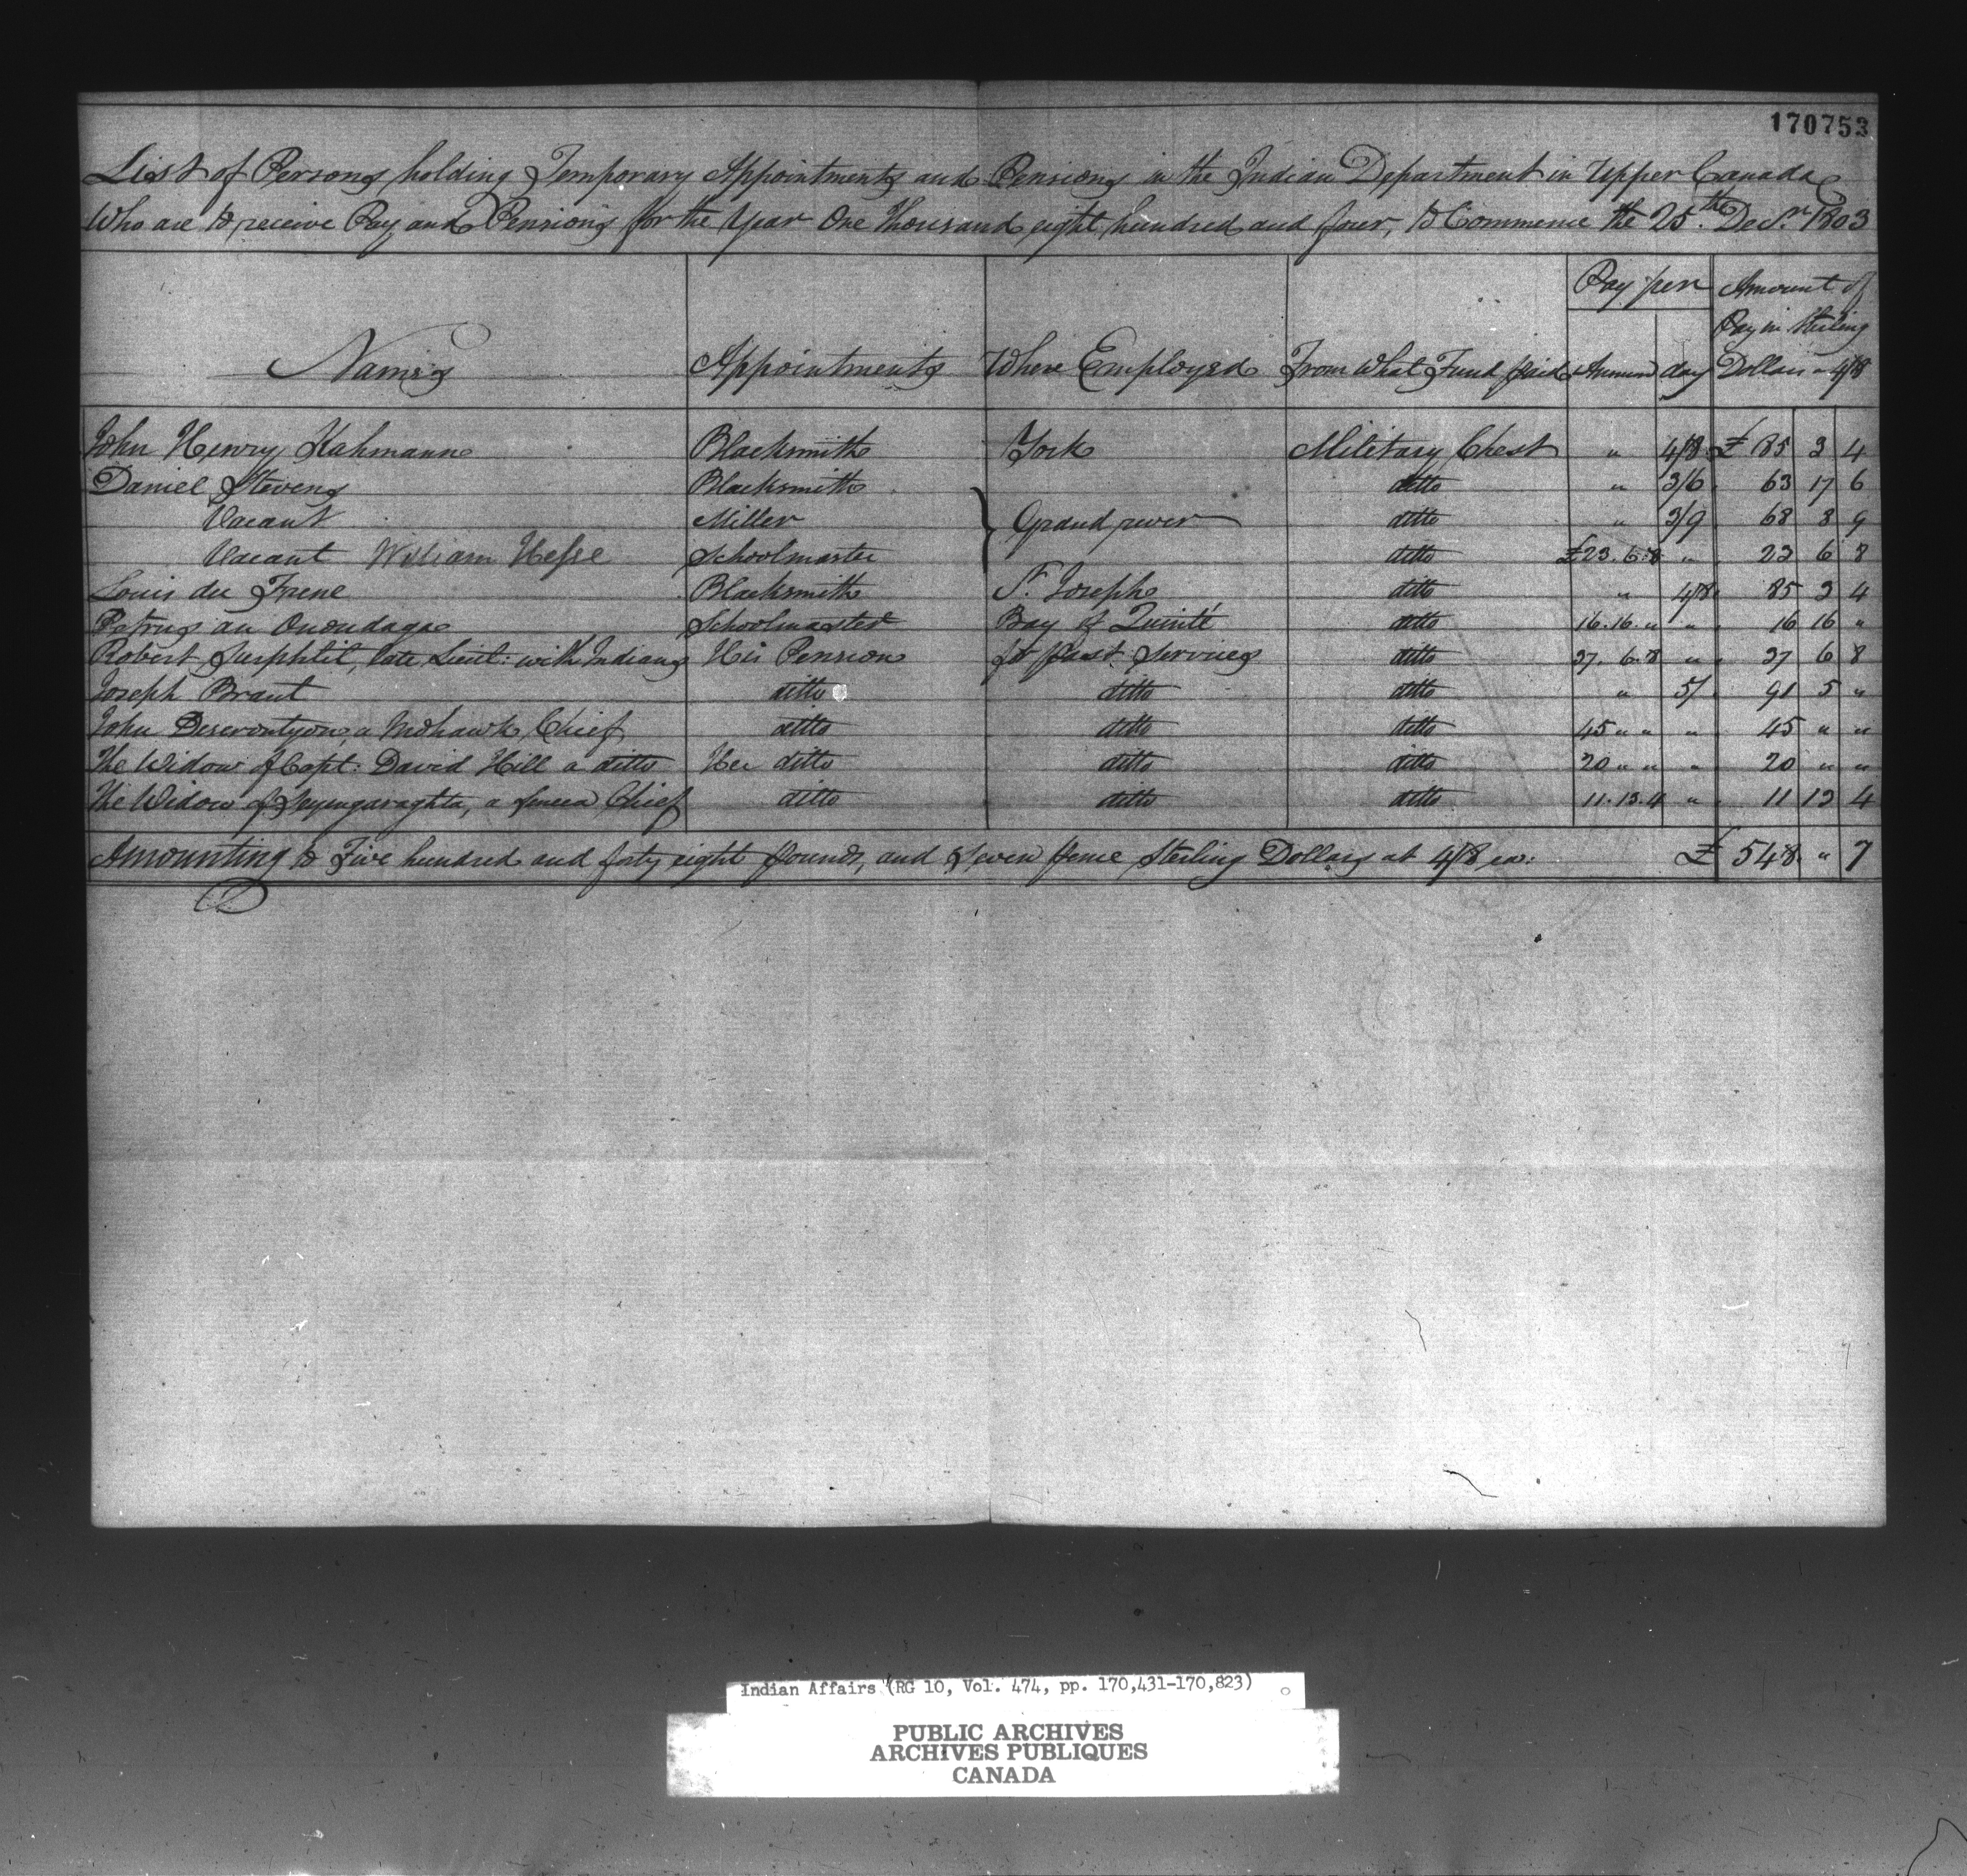 170753
List of Persons holding Temporary Appointments and Pensions in the Indian Department in Upper Canada
Who are to receive Pay and Pensions for the Year One Thousand eight hundred and four, to Commence the 25th Decr. 1803
Names Appointments Where Employed From What Fund paid Pay per Annum day Amount of Pay in Sterling Dollars a 4/8
John Henry Kahmann Blacksmith York Military Chest " 4/8 £ 85 3 4
Daniel Stevens Blacksmith ditto " 3/6 63 17 6
Vacant Miller Grand river ditto " 3/9 68 8 9
Vacant William Hesse Schoolmaster ditto £23.6.8 " 23 6 8
Louis du Frene Blacksmith St. Joseph ditto " 4/8 85 3 4
Petrus an Onondaga Schoolmaster Bay of Quinté ditto 16.16." " 16 16 "
Robert Surphlit, late Lieut: with Indians His Pension for past Services ditto 37.6.8 " 37 6 8
Joseph Brant ditto ditto ditto " 5/ 91 5 "
John Deserontyon, a Mohawk Chief ditto ditto ditto 45 " " " 45 " "
The Widow of Capt: David Hill a ditto Her ditto ditto ditto 20 " " " 20 " "
The Widow of Sayengaraghta, a Seneca Chief ditto ditto ditto 11.13.4 " 11 13 4
Amounting to Five hundred and forty eight pounds, and Seven pence Sterling Dollars at 4/8 ea: £ 548 " 7
Indian Affairs (RG 10, Vol. 474, pp. 170,431-170,823)
PUBLIC ARCHIVES
ARCHIVES PUBLIQUES
CANADA